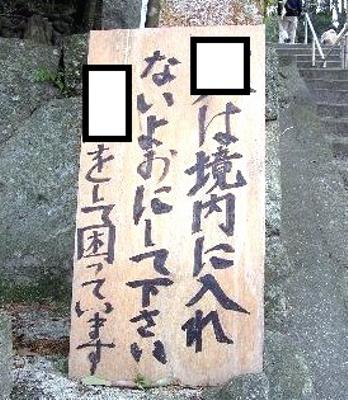 は境内に入れ
ないよおにして下さい
をして困っています